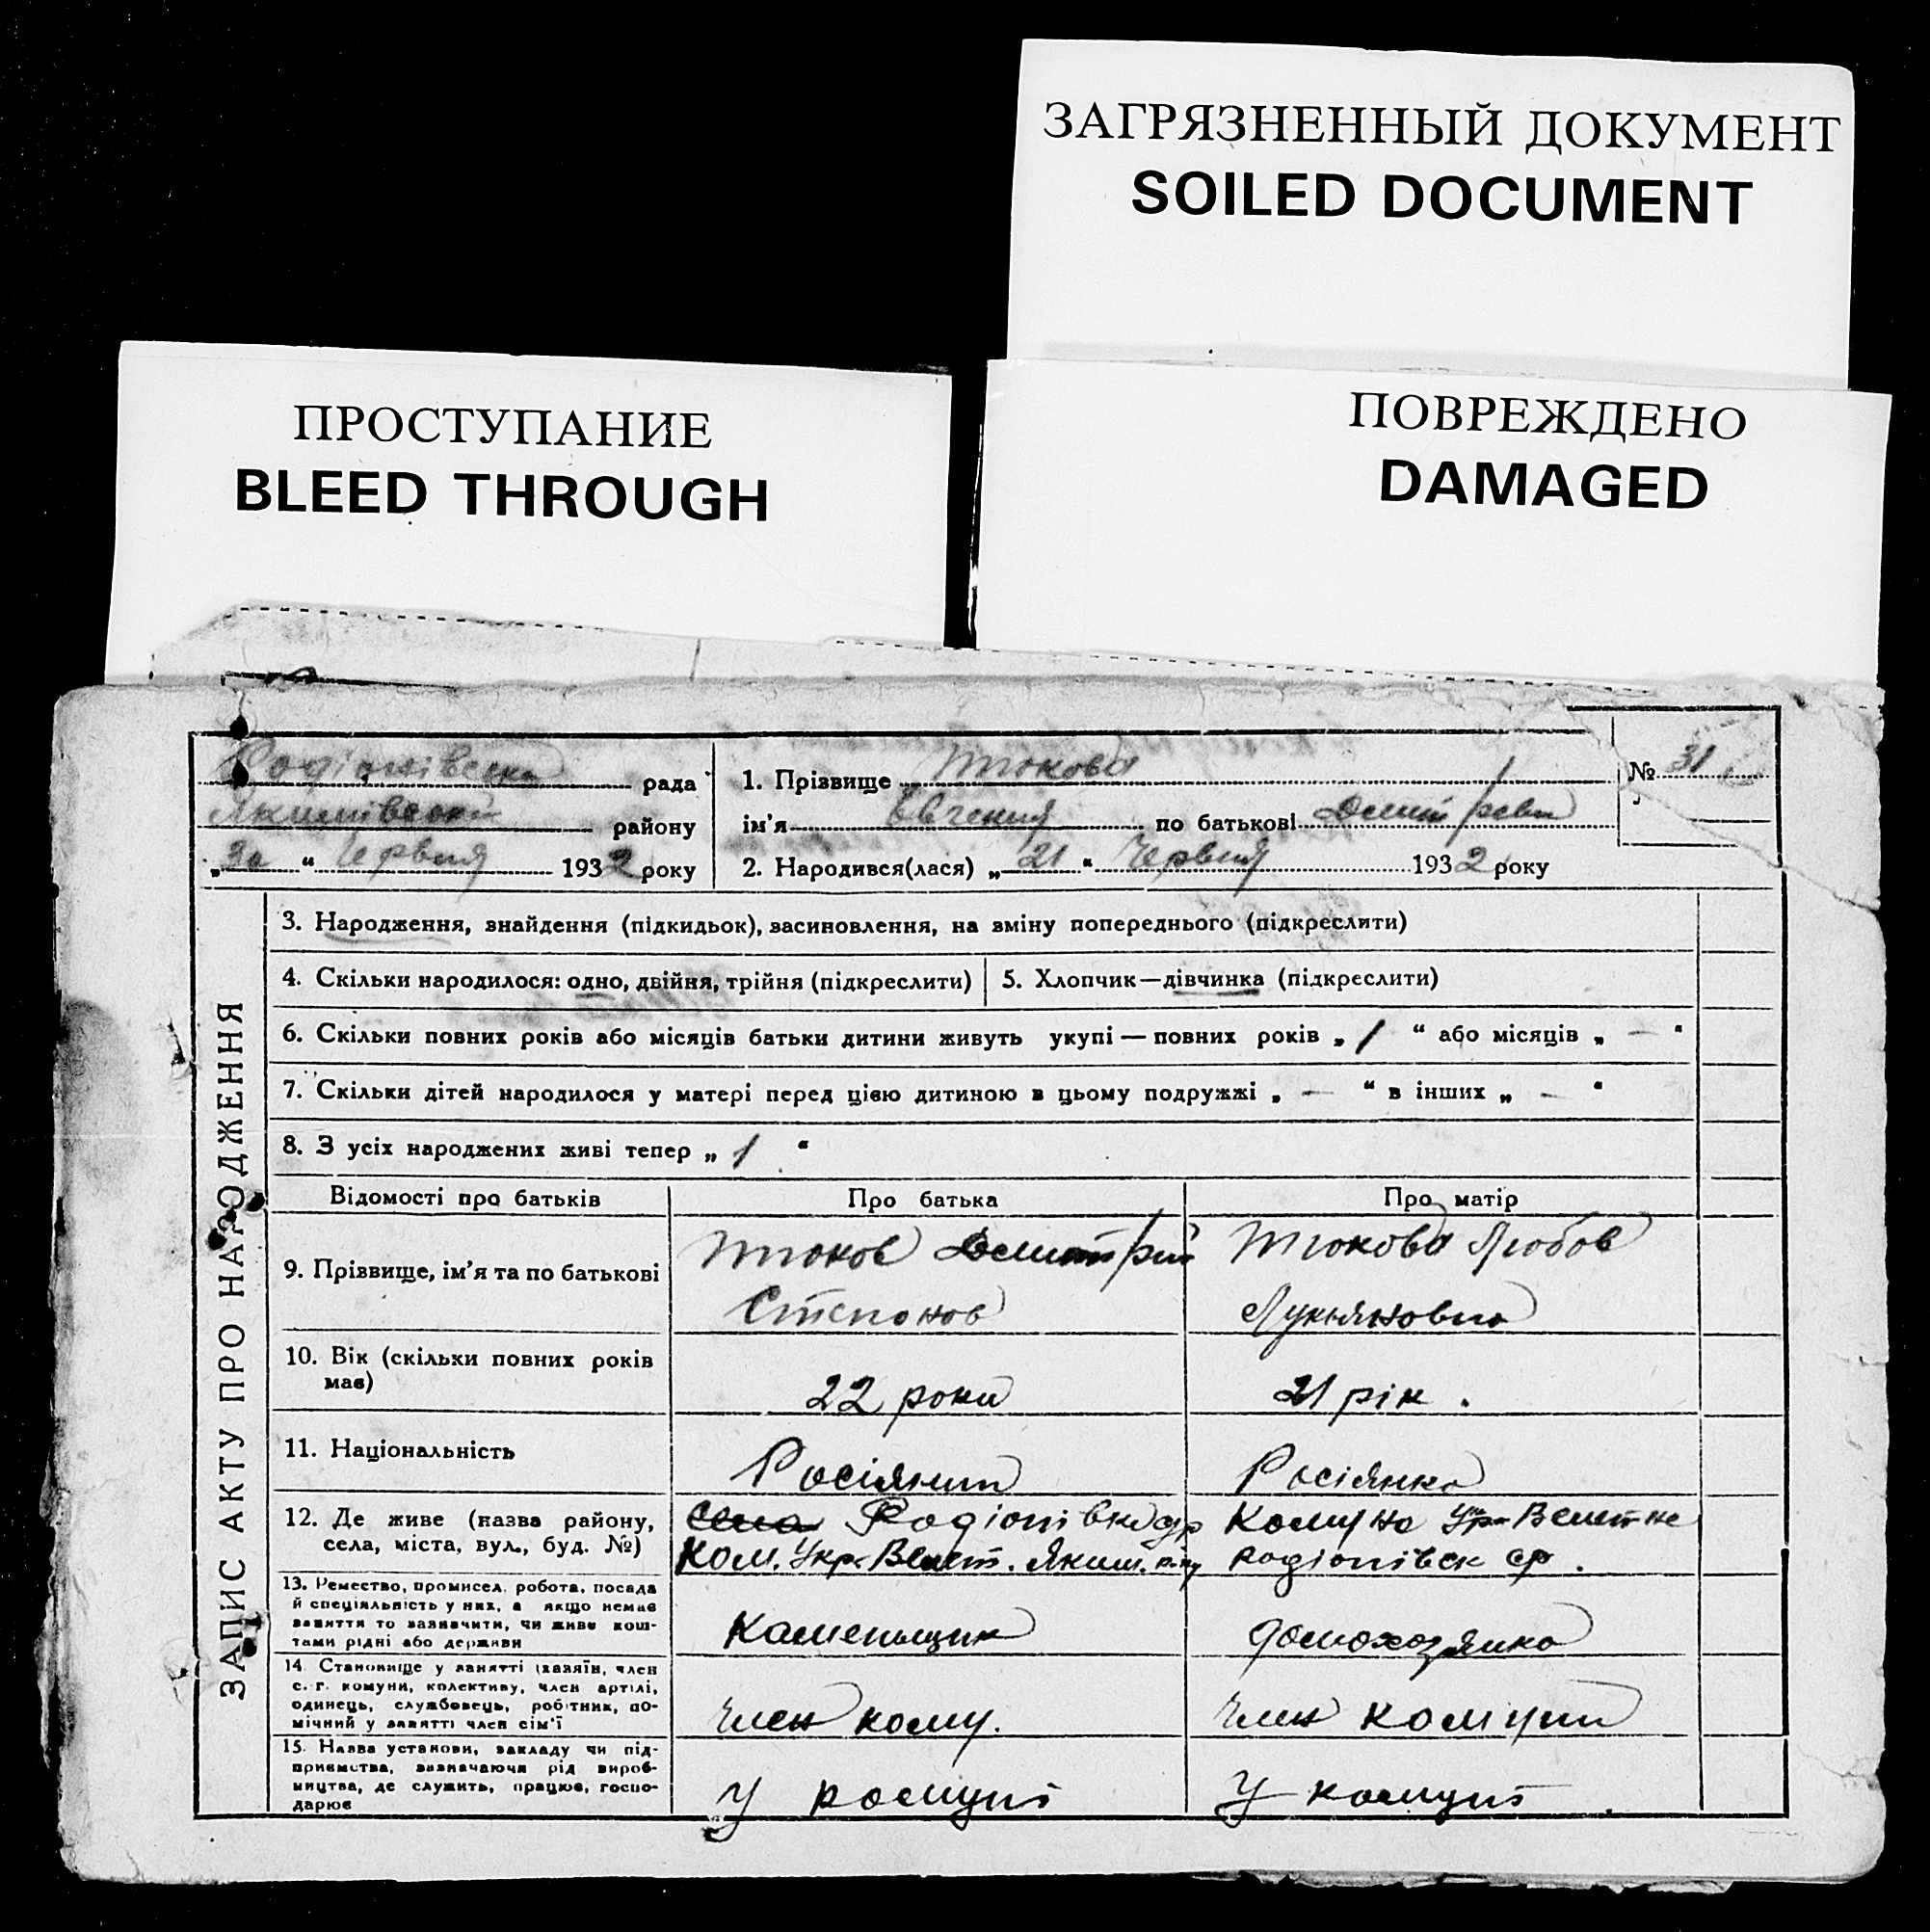 ЗАГРЯЗНЕННЫЙ ДОКУМЕНТ
SOILED DOCUMENT
ПРОСТУПАНИЕ
BLEED THROUGH
ПОВРЕЖДЕНО
DAMAGED
ЗАПИС АКТУ ПРО НАРОДЖЕННЯ
Родіонівська рада
Якимівськ району
„30“ Червня 1932 року
1. Прізвище Тюкова
№ 31
ім'я Євгения по батькові
2. Народився(лася) „21“ Червня 1932 року
3. Народження, знайдення (підкидьок), засиновлення, на зміну попереднього (підкреслити)
4. Скільки народилося: одно, двійня, трійня (підкреслити)
5. Хлопчик—дівчинка (підкреслити)
6. Скільки повних років або місяців батьки дитини живуть укупі — повних років „ 1 “ або місяців „ — “
7. Скільки дітей народилося у матері перед цією дитиною в цьому подружжі „ — “ в інших „ — “
8. З усіх народжених живі тепер „ 1 “
Відомості про батьків
Про батька
Про матір
9. Прізвище, ім'я та по батькові
Тюков Дмитрій
Степанов
Тюкова Любов
Лукьяновна
10. Вік (скільки повних років
має)
22 роки
21 рік.
11. Національність
Росіянин
Росіянка
12. Де живе (назва району,
села, міста, вул., буд. №)
Села Родіонівка ср
Ком. Укр. Велет. Яким. р-ну
Комуна Укр-Велетне
Родіонівск ср.
13. Ремество, промисел, робота, посада
й спеціяльність у них, а якщо немає
заняття то зазначити, чи живе кош-
тами рідні або держави
Каменьщик
домохозяйка
14. Становище у занятті (хазяїн, член
с.-г. комуни, колективу, член артілі,
одинець, службовець, робітник, по-
мічний у занятті член сім'ї
Член кому.
Член комуни
15. Назва установи, закладу чи під-
приємства, зазначаючи рід вироб-
ництва, де служить, працює, госпо-
дарює
У комуні
У комуні